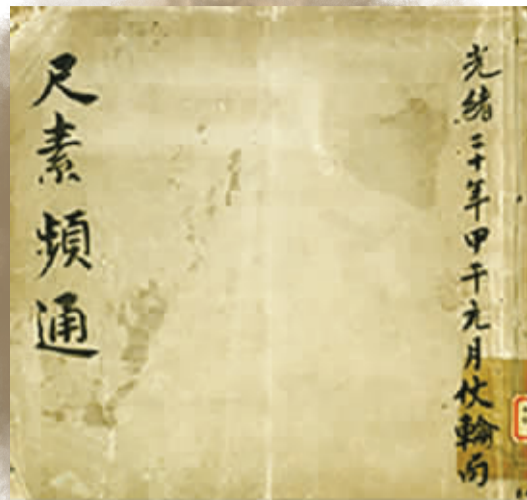 光緒二十年甲午元月仗輪而
尺素頻通